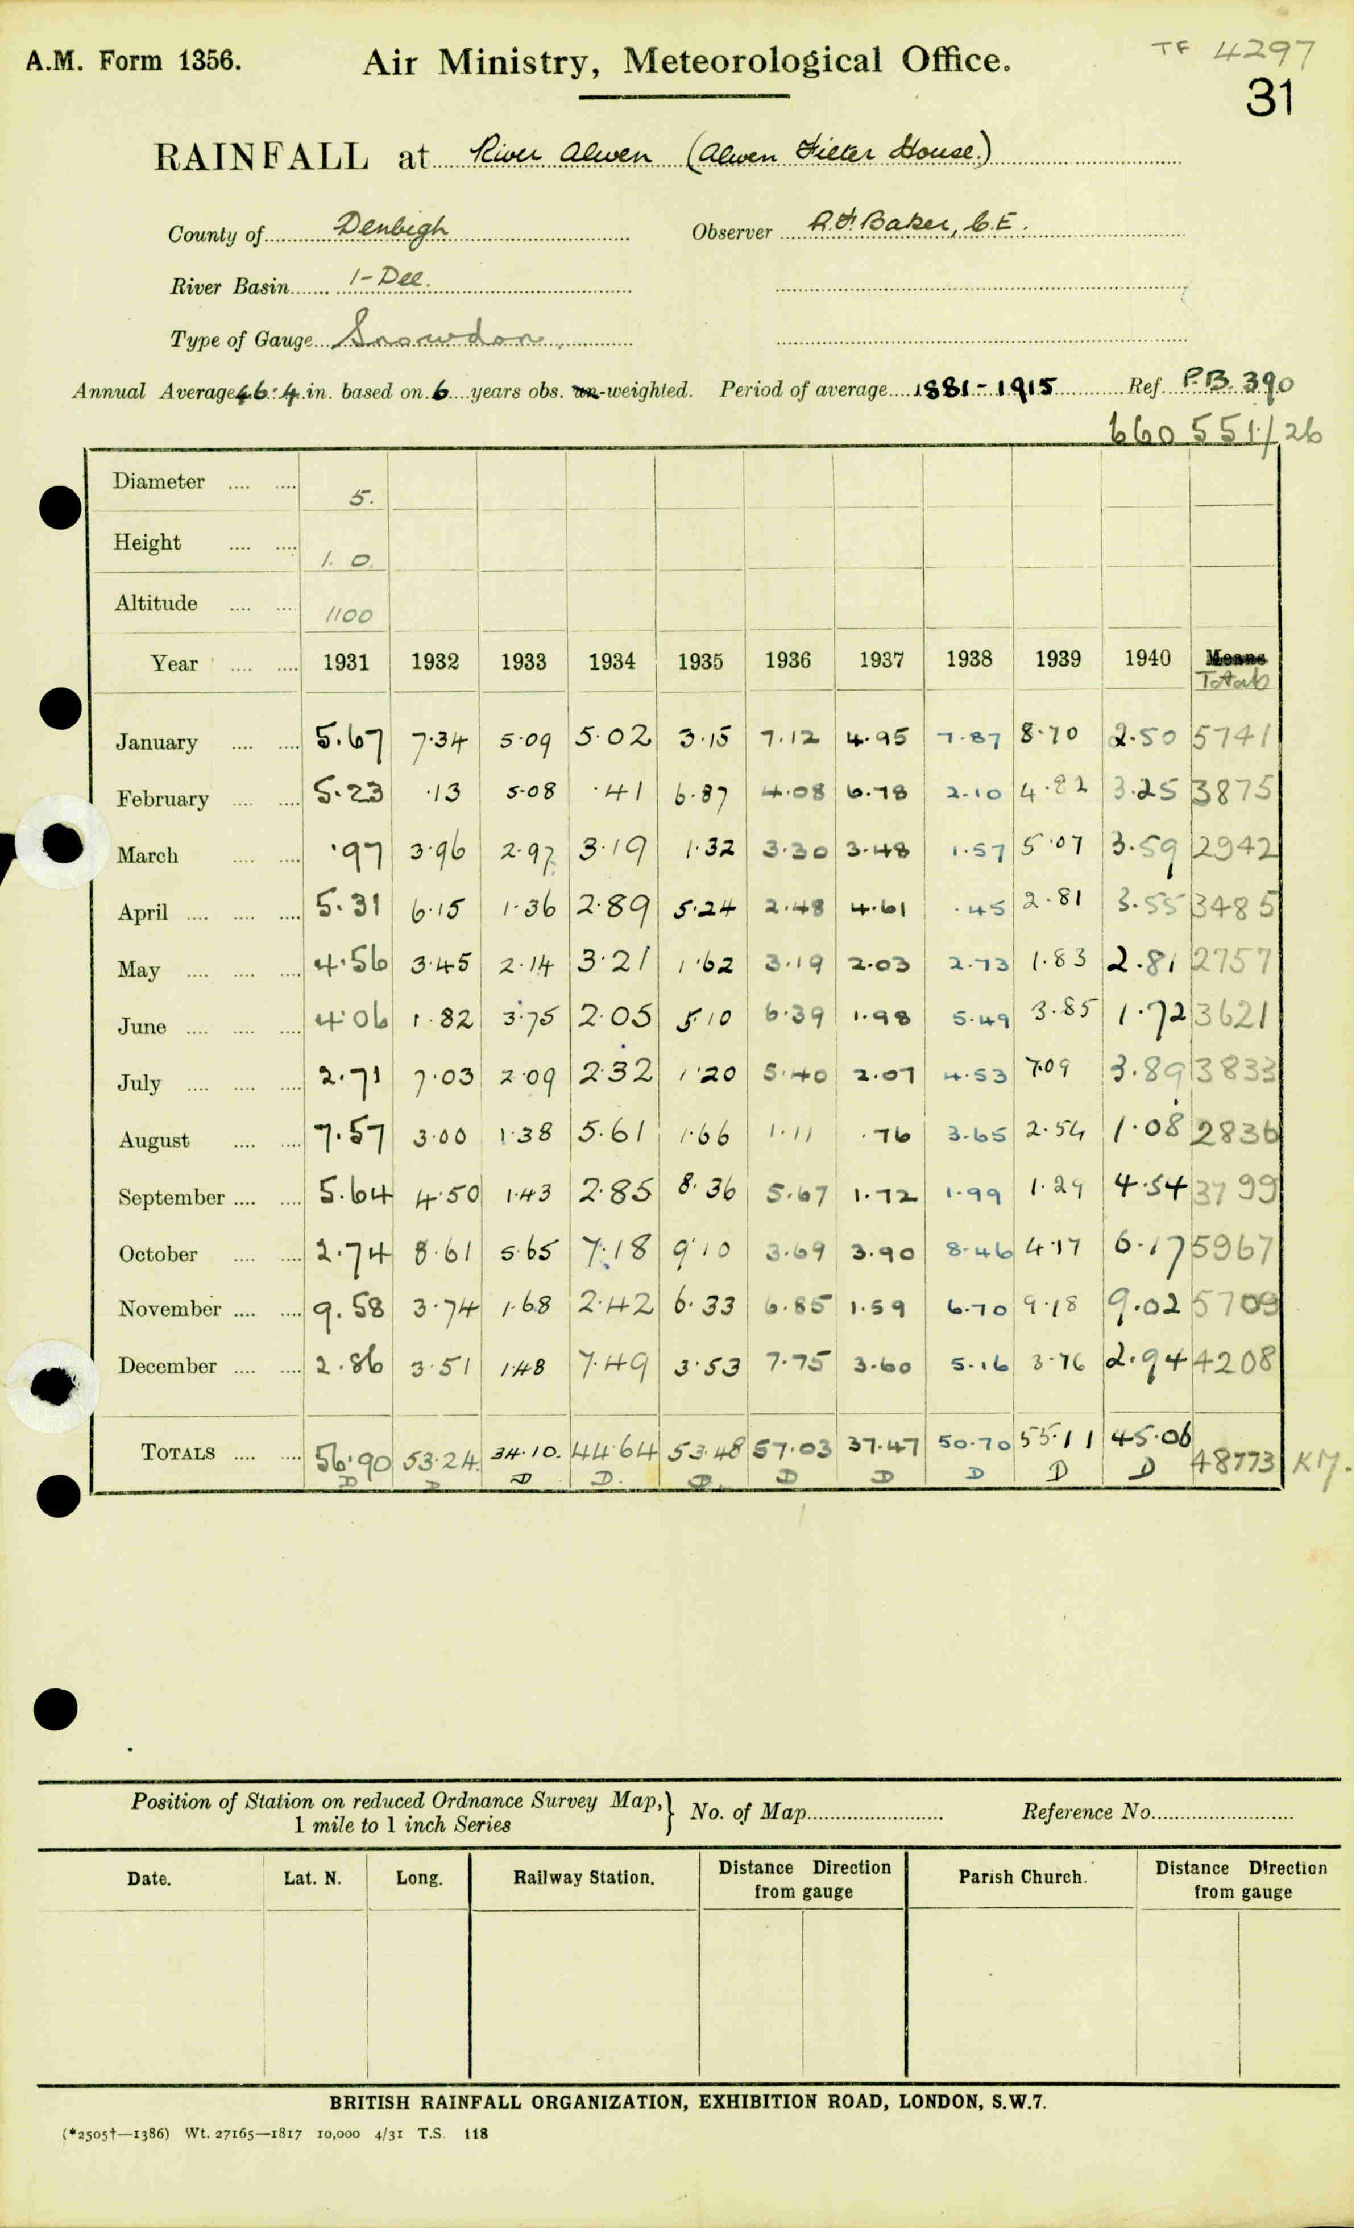 A.M. Form 1356.
Air Ministry, Meteorological Office.
TF 4297
31
RAINFALL at River Alwen (Alwen Filter House.)
County of Denbigh Observer A.F. Baker, C.E.
River Basin 1-Dee.
Type of Gauge Snowdon.
Annual Average 46.4 in. based on 6 years obs. un-weighted. Period of average 1881-1915 Ref. P.B. 390
660 551/26
Diameter 5.
Height 1. 0.
Altitude 1100
Year 1931 1932 1933 1934 1935 1936 1937 1938 1939 1940 Means
Totals
January 5.67 7.34 5.09 5.02 3.15 7.12 4.95 7.87 8.70 2.50 5741
February 5.23 .13 5.08 .41 6.87 4.08 6.78 2.10 4.82 3.25 3875
March .97 3.96 2.97 3.19 1.32 3.30 3.48 1.57 5.07 3.59 2942
April 5.31 6.15 1.36 2.89 5.24 2.48 4.61 .45 2.81 3.55 3485
May 4.56 3.45 2.14 3.21 1.62 3.19 2.03 2.73 1.83 2.81 2757
June 4.06 1.82 3.75 2.05 5.10 6.39 1.98 5.49 3.85 1.72 3621
July 2.71 7.03 2.09 2.32 1.20 5.40 2.07 4.53 7.09 3.89 3833
August 7.57 3.00 1.38 5.61 1.66 1.11 .76 3.65 2.54 1.08 2836
September 5.64 4.50 1.43 2.85 8.36 5.67 1.72 1.99 1.29 4.54 3799
October 2.74 8.61 5.65 7.18 9.10 3.69 3.90 8.46 4.17 6.17 5967
November 9.58 3.74 1.68 2.42 6.33 6.85 1.59 6.70 9.18 9.02 5709
December 2.86 3.51 1.48 7.49 3.53 7.75 3.60 5.16 3.76 2.94 4208
TOTALS 56.90 53.24 34.10. 44.64 53.48 57.03 37.47 50.70 55.11 45.06 48773 KM.
D D D D. D. D D D D D
Position of Station on reduced Ordnance Survey Map, 1 mile to 1 inch Series } No. of Map Reference No.
Date. Lat. N. Long. Railway Station. Distance Direction from gauge Parish Church. Distance Direction from gauge
BRITISH RAINFALL ORGANIZATION, EXHIBITION ROAD, LONDON, S.W.7.
(*2505†—1386) Wt. 27165—1817 10,000 4/31 T.S. 118